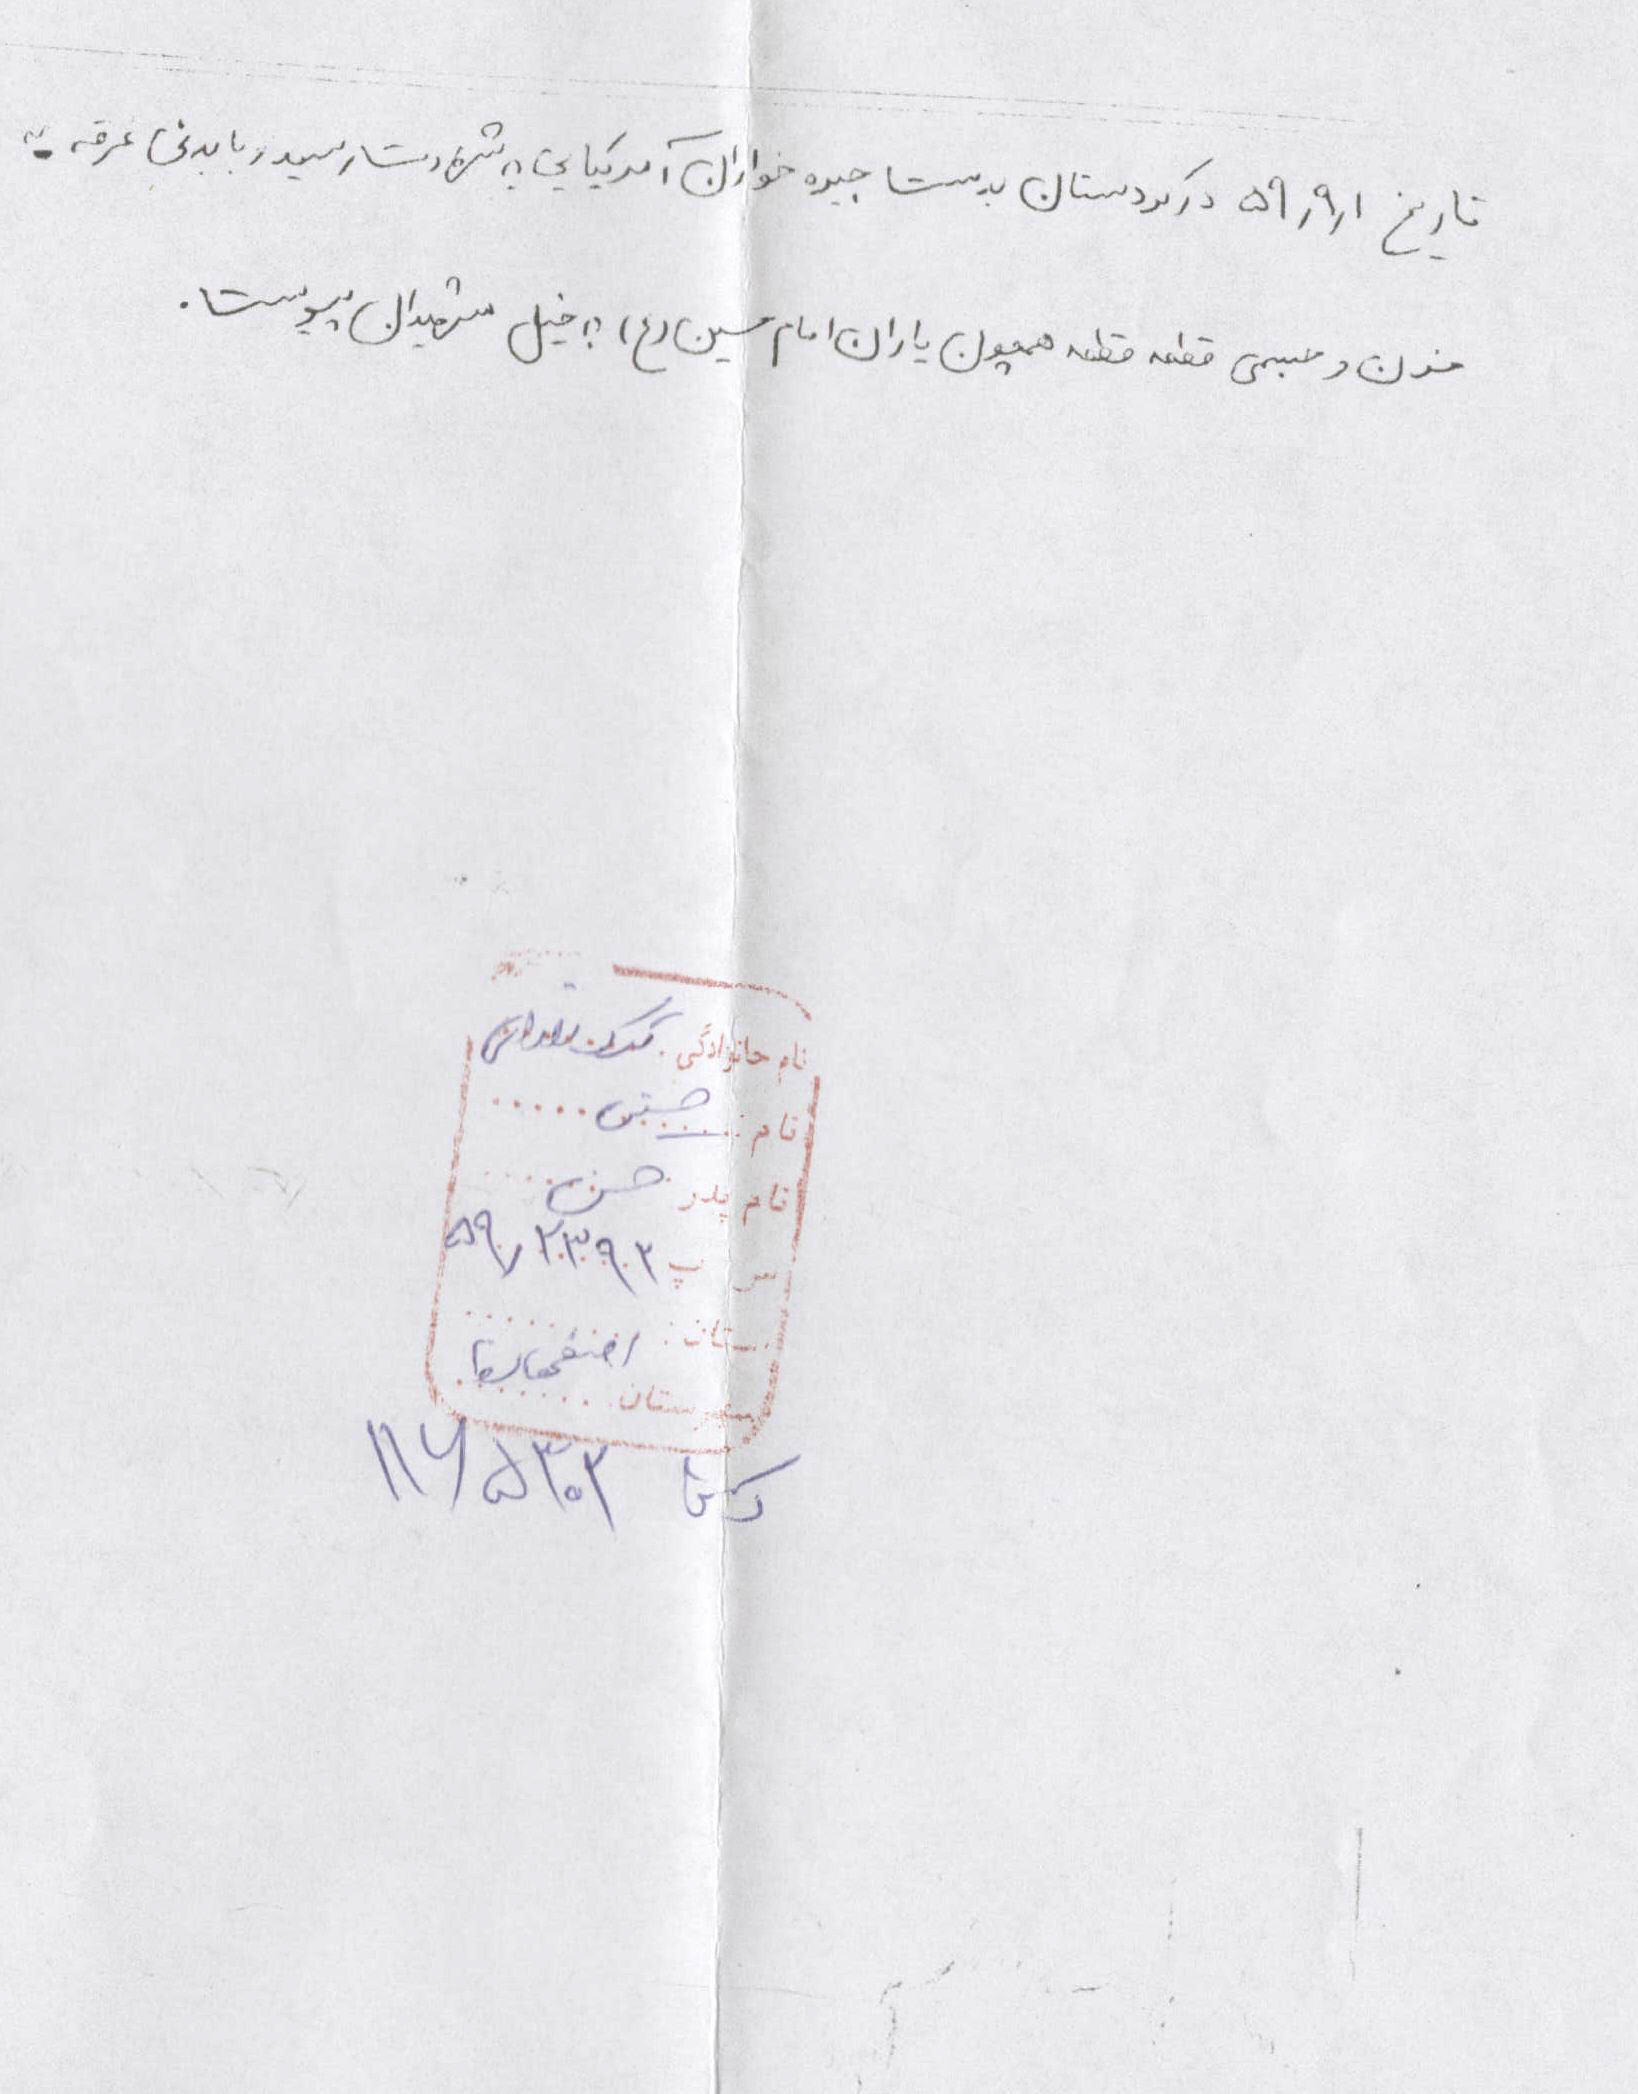 تاریخ ۵۹/۹/۱ در کردستان بدست جیره خواران آمریکایی به شهادت رسید و با بدنی غرقه به
خون و جسمی قطعه قطعه همچون یاران امام حسین (ع) به خیل شهیدان پیوست.
نام خانوادگی:
نام: مجتبی
نام پدر حسن
س پ ۵۹/۲۳۹۰۳
ستان:
شهرستان
کد ۱۱۶۵۳۰۲